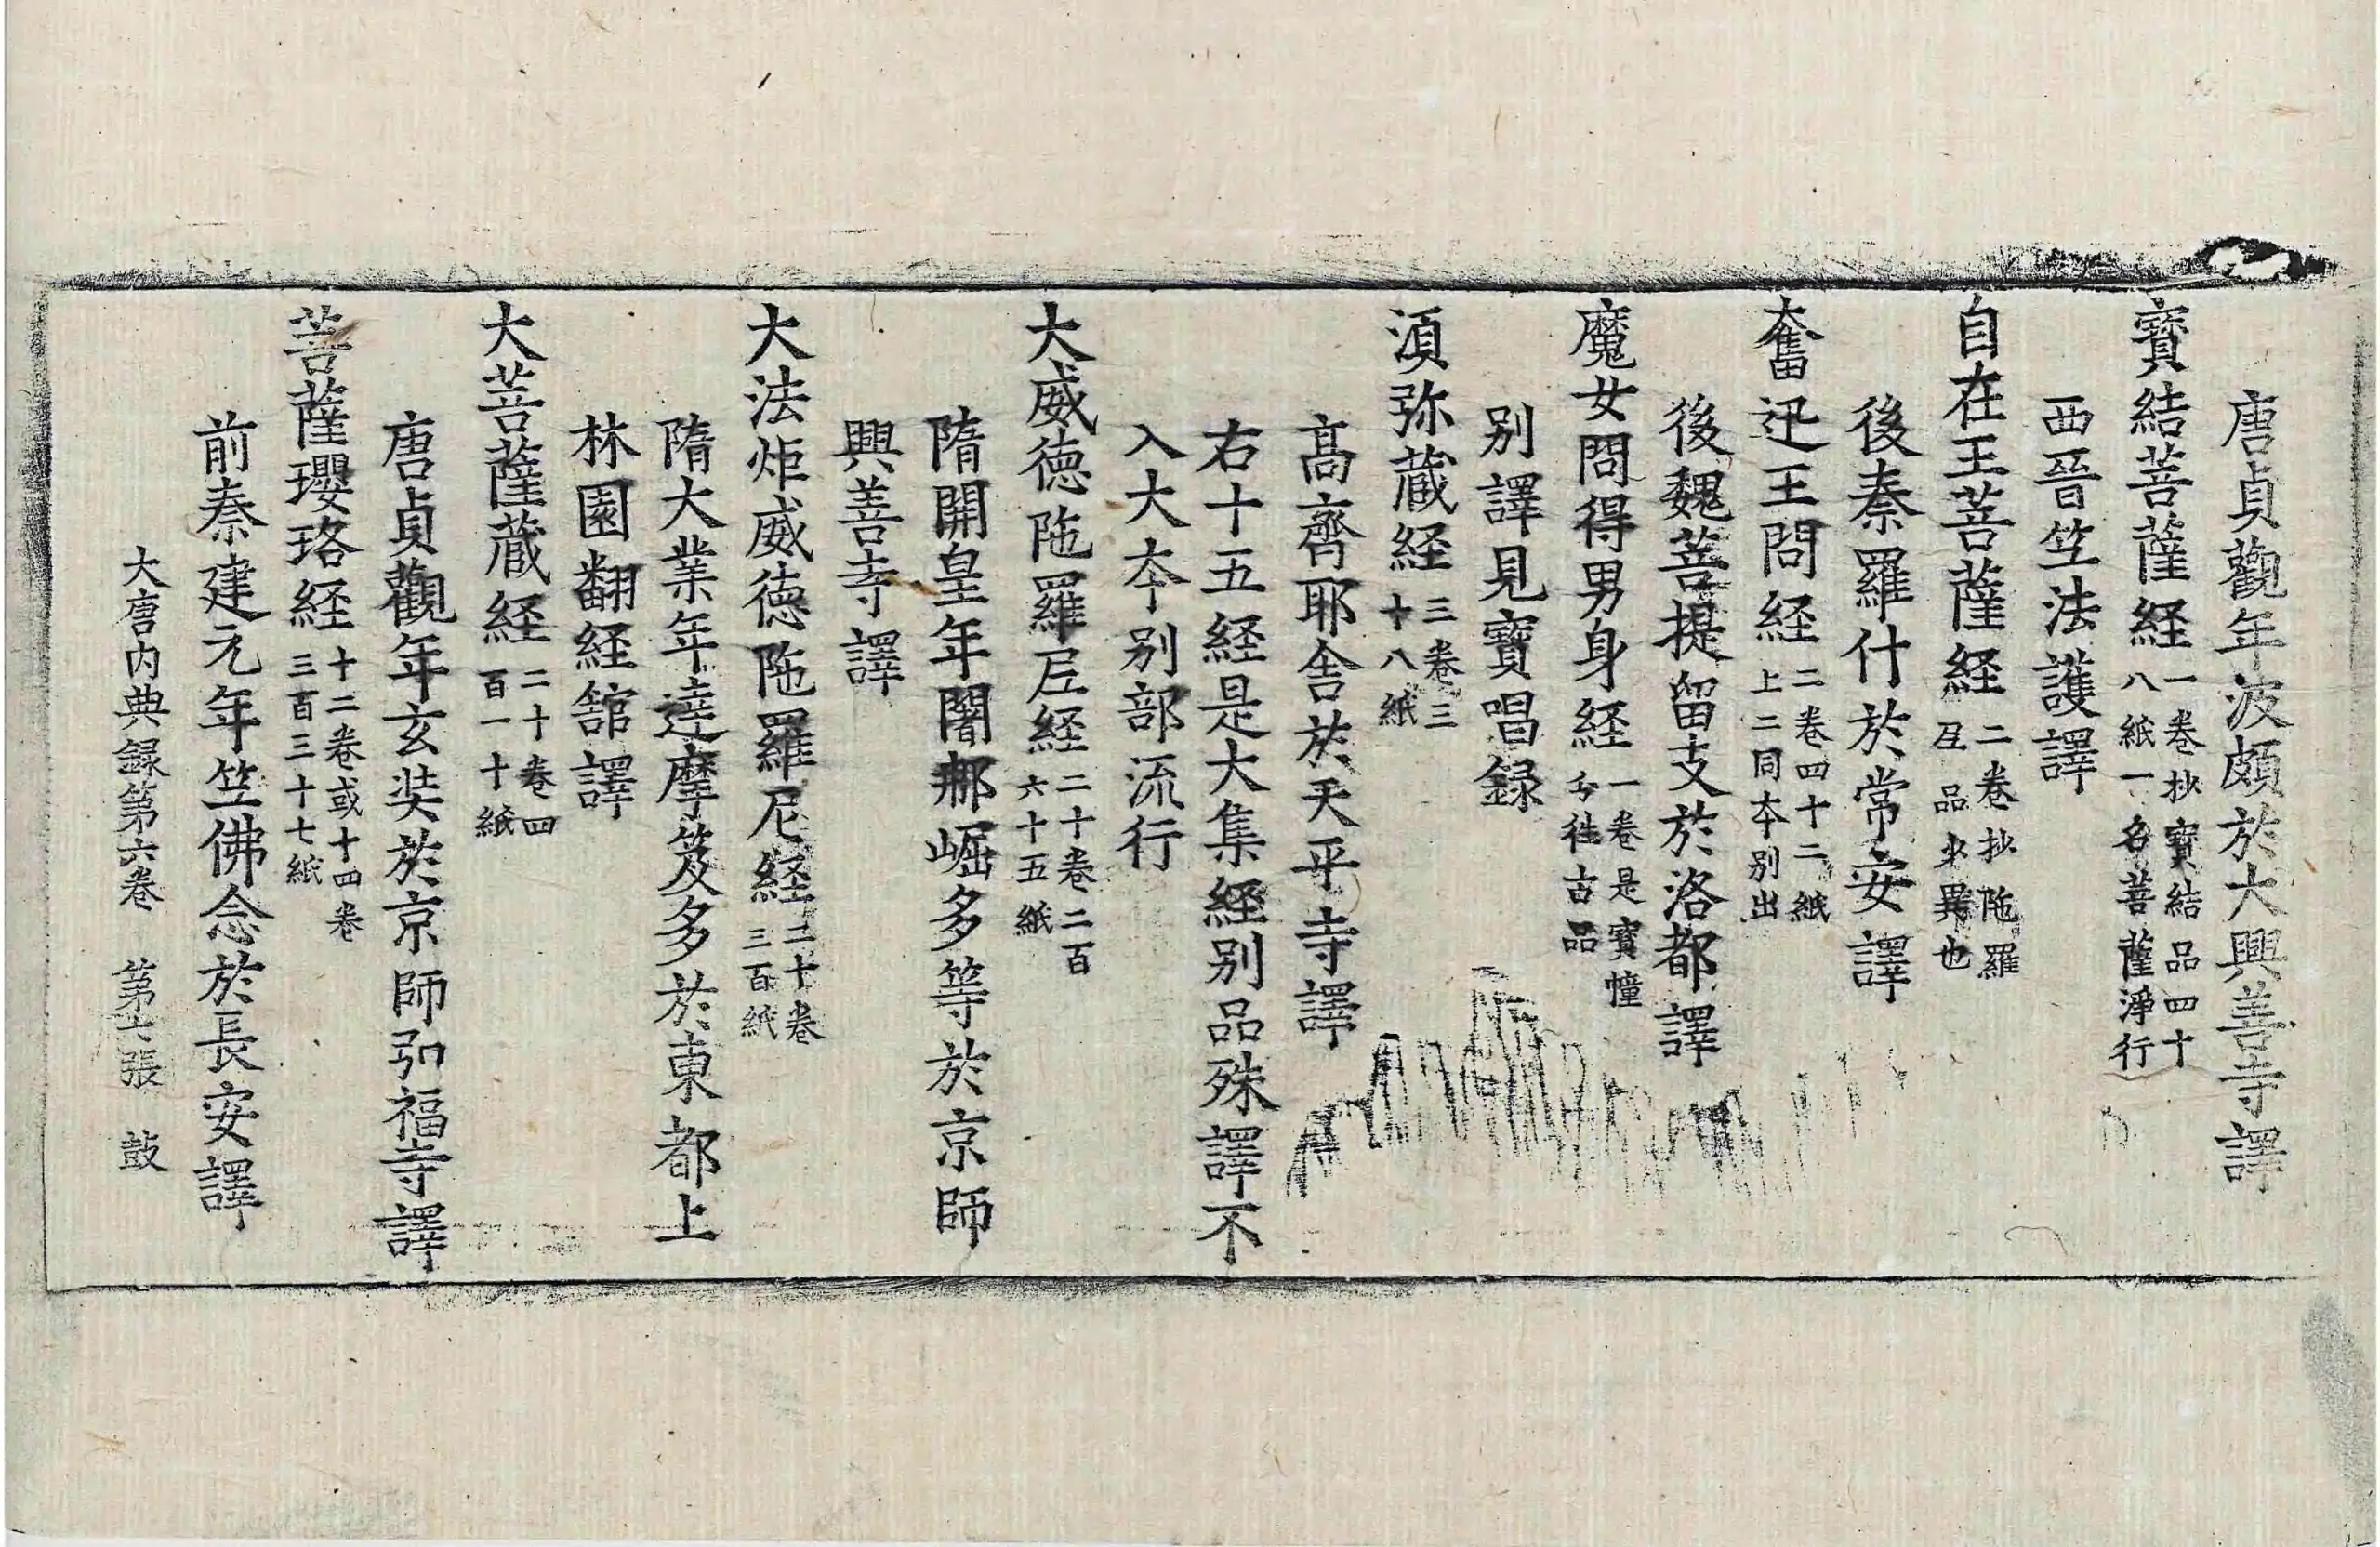 唐貞觀年波頗於大興善寺譯
寶結菩薩経一卷抄寶結品四十
八紙一名菩薩淨行
西晉竺法護譯
自在王菩薩経二卷抄陁羅
品異也
後秦羅什於常安譯
奮迅王問経二卷四十二紙
上二同夲別出
後魏菩提留支於洛都譯
魔女問得男身経一卷是寶幢
分徃古品
别譯見寶唱録
湏弥蔵経三卷三
十八紙
髙齊耶舍於天平寺譯
右十五経是大集経别品殊譯不
入大夲别部流行
大威徳陁羅尼経二十卷二百
六十五紙
隋開皇年闍那崛多等於京師
興善寺譯
大法炬威徳陁羅尼経二十卷
三百紙
隋大業年達摩笈多於東都上
林園翻経舘譯
大菩薩蔵経二十卷四
百一十紙
唐貞觀年玄奘於京師弘福寺譯
菩薩瓔珞経十二卷或十四卷
三百三十七紙
前秦建元年竺佛念於長安譯
大唐内典録第六卷 第七張 鼓